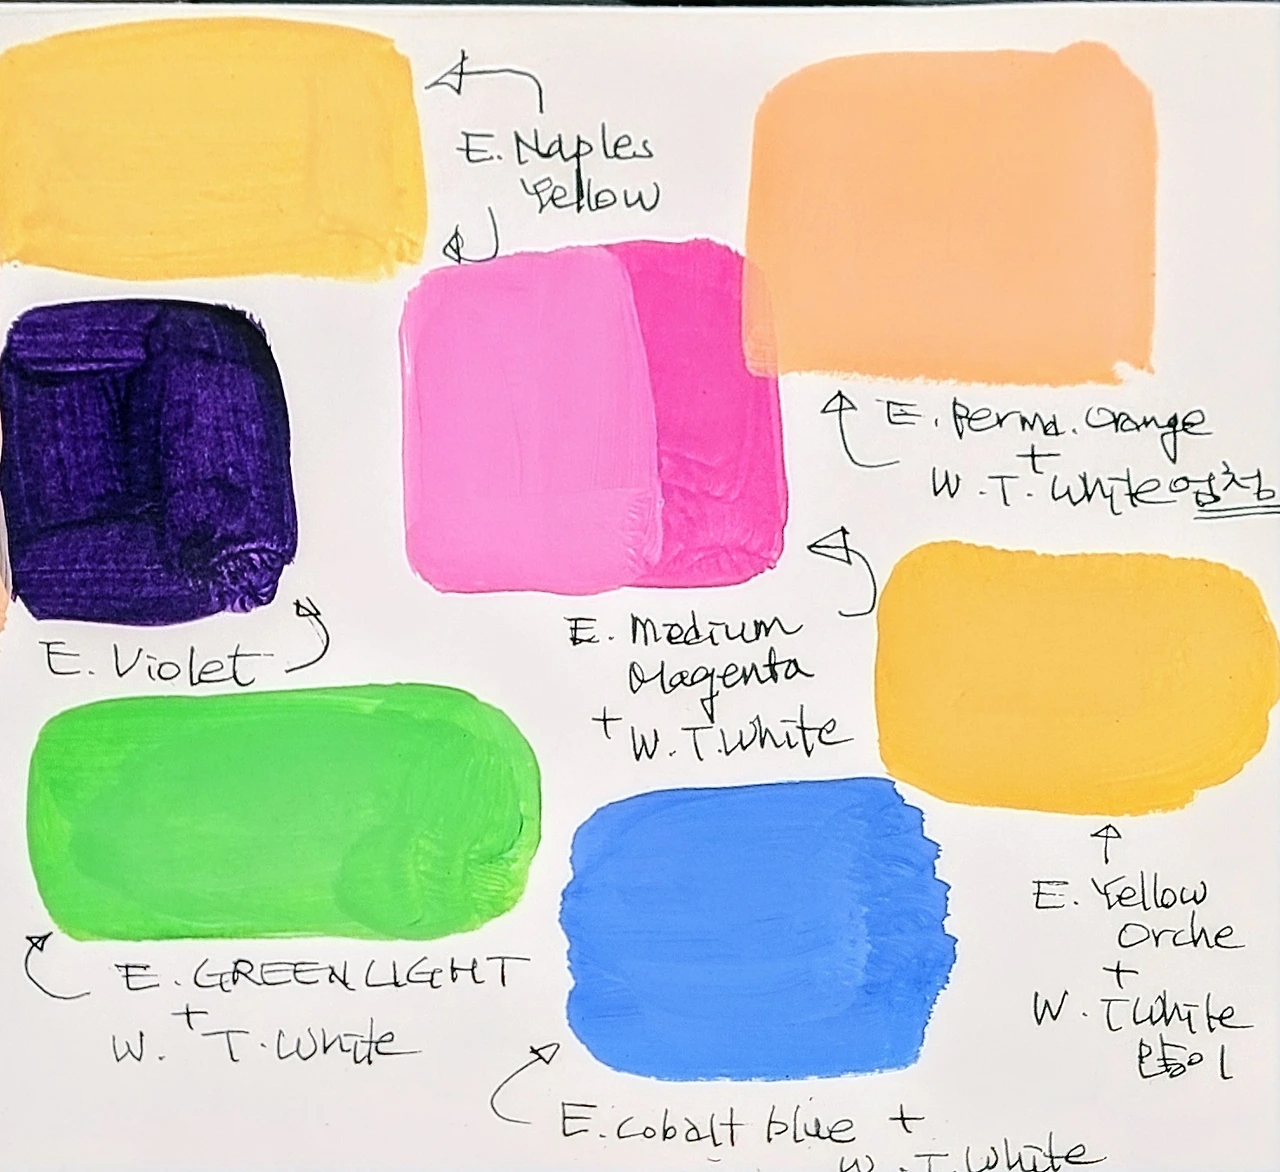 E. Naples
Yellow
E. Perma. Orange
+
W. T. White 엄청
E. Violet
E. Medium
Magenta
+ W. T. White
E. Yellow
Orche
+
W. T White
많이
E. GREEN LIGHT
+
W. T. White
E. cobalt blue +
W. T. White